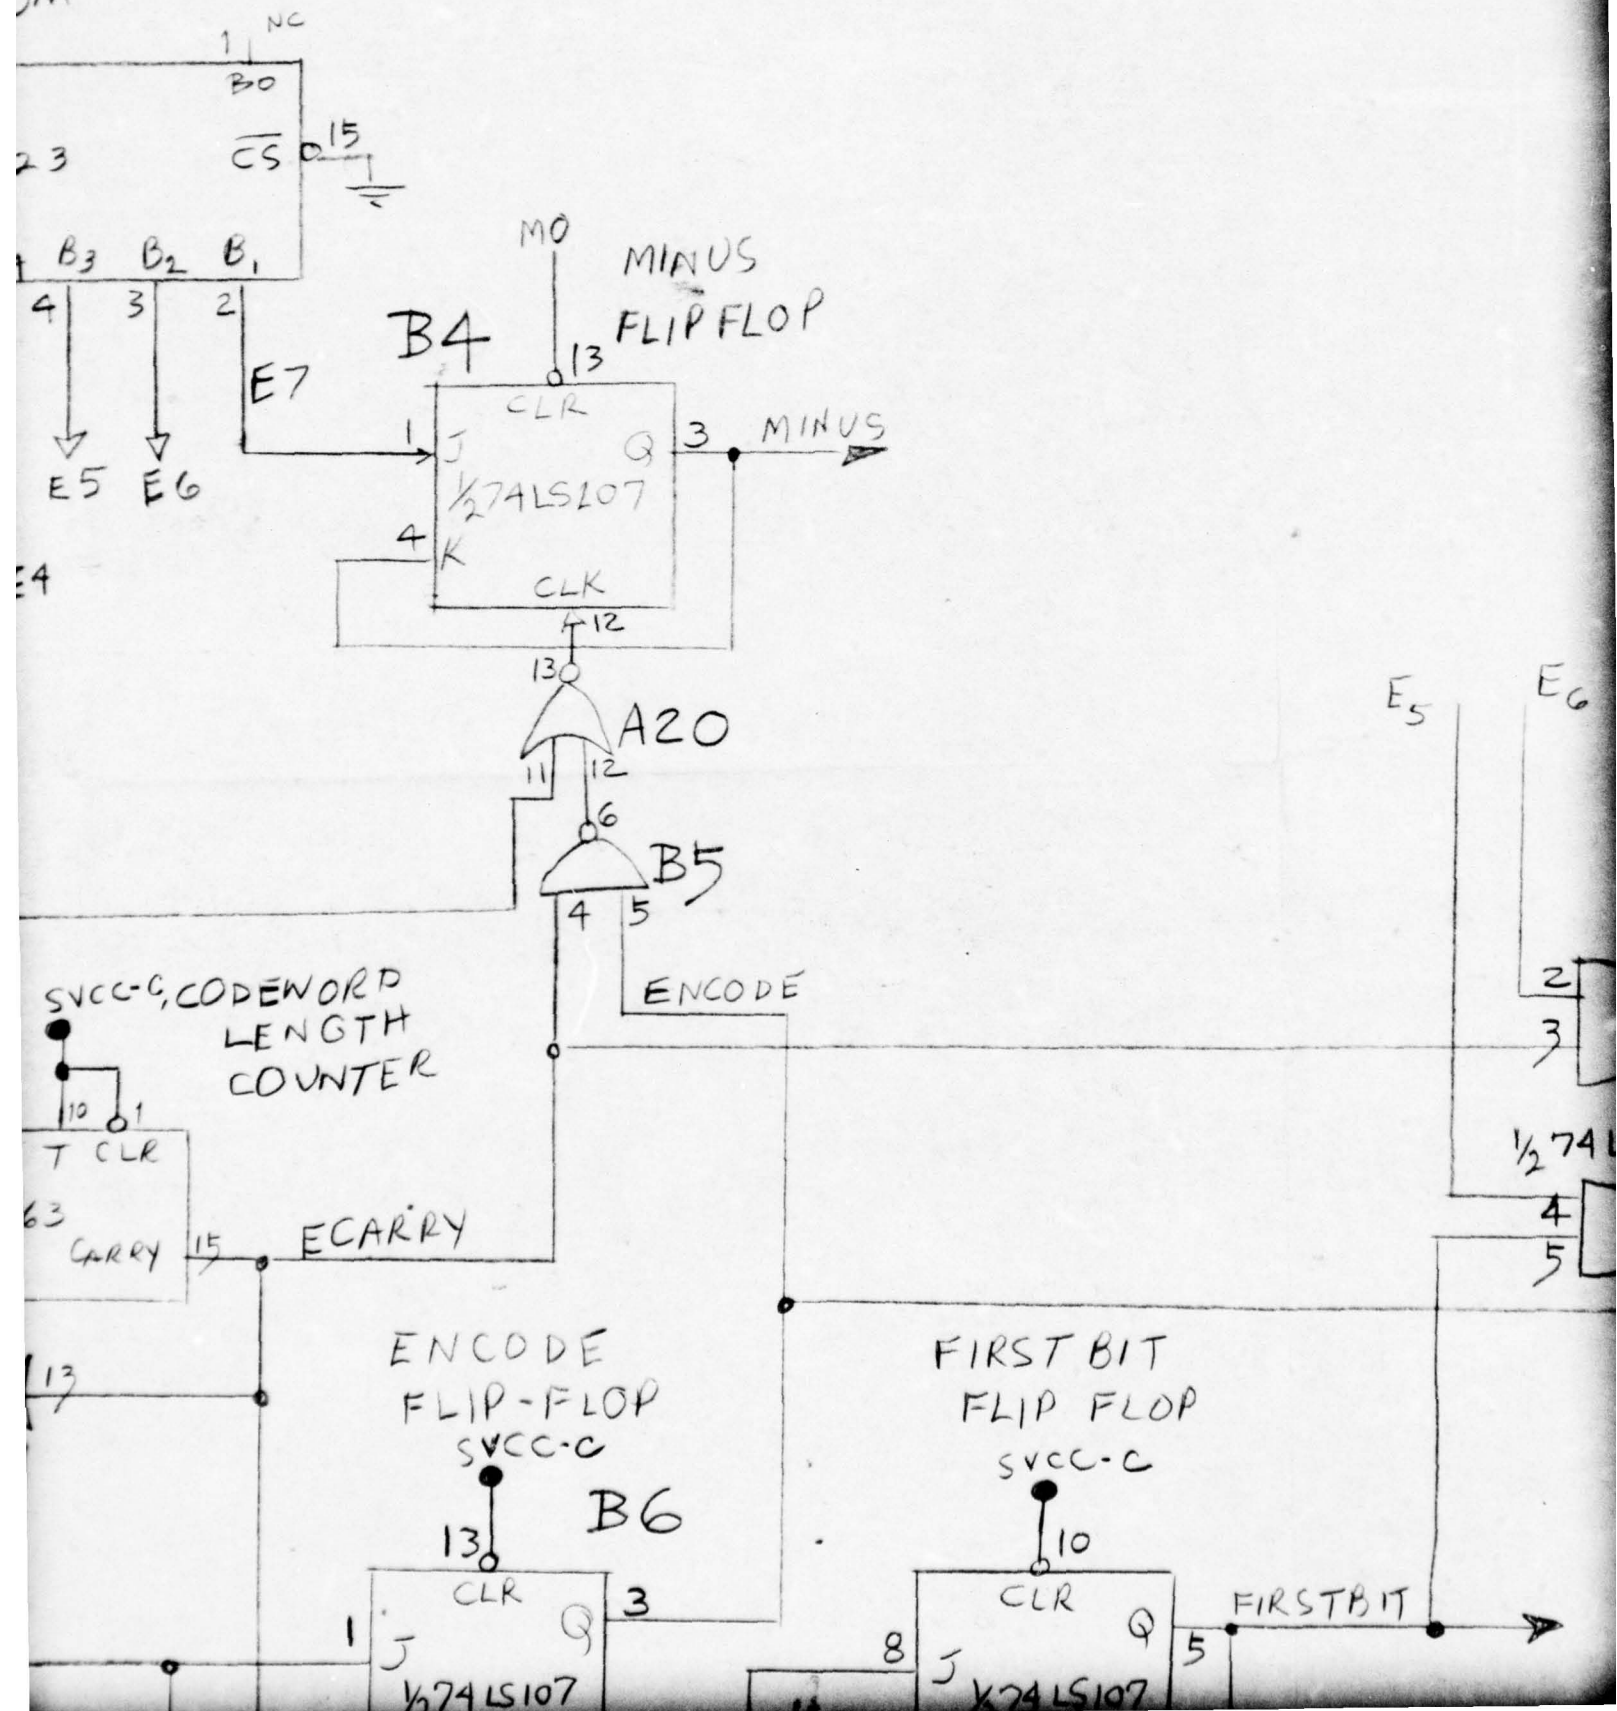 1 NC
B0
23 CS 15
B3 B2 B1
4 3 2
E7
E5 E6
E4
M0
MINUS
FLIPFLOP
B4
13
CLR
1 J Q 3 MINUS
1/2 74LS107
4 K
CLK
12
13
A20
11 12
6
B5
4 5
ENCODE
E5 E6
2
3
1/2 74L
4
5
SVCC-C, CODEWORD
LENGTH
COUNTER
10 1
T CLR
63
CARRY 15
ECARRY
13
ENCODE
FLIP-FLOP
SVCC-C
B6
13
CLR
1 J Q 3
1/2 74LS107
FIRST BIT
FLIP FLOP
SVCC-C
10
CLR
8 J Q 5
1/2 74LS107
FIRSTBIT